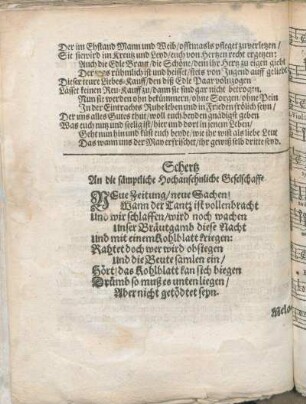 Der im Ehstand Mann und Weib / offtmals pfleget zuverletzen /
Sie sierwird im Kreutz und Leyd / euch von Hertzen recht ergetzen:
Auch die Edle Braut / die Schöne / dem ihr Hertz zu eigen giebt
Der es rühmlich ist und heisset / stets von Jugend auff geliebt
Dieser teure Liebes-Kauff / den diß Edle Paar vollnzogen
Lässet keinen Reu-Kauff zu / dann sie sind gar nicht betrogen.
Nun sie werden ohn bekümmern / ohne Sorgen / ohne Pein
In der Eintrachts Ruhe leben und in Frieden frölich seyn /
Der uns alles Gutes thut / woll euch beyden gnädigst geben
Was euch nutz und selig ist / hier und dort in jenem Leben /
Geht nun hin und küst euch beyde / wie ihr wist als liebe Leut
Das wann uns der May erfrischet / ihr gewiß selb dritte seyd.
Schertz
An die sämptliche Hochansehnliche Gesellschafft
NEue Zeitung / neue Sachen!
Wann der Tantz ist vollenbracht
Und wir schlaffen / wird noch wachen
Unser Bräutgamb diese Nacht
Und mit einem Kohlblatt kriegen:
Rahtet doch wer wird obsiegen
Und die Beute samlen ein /
Hört / das Kohlblatt kan sich biegen
Drümb so muß es unten liegen /
Aber nicht getödtet seyn.
Melo-